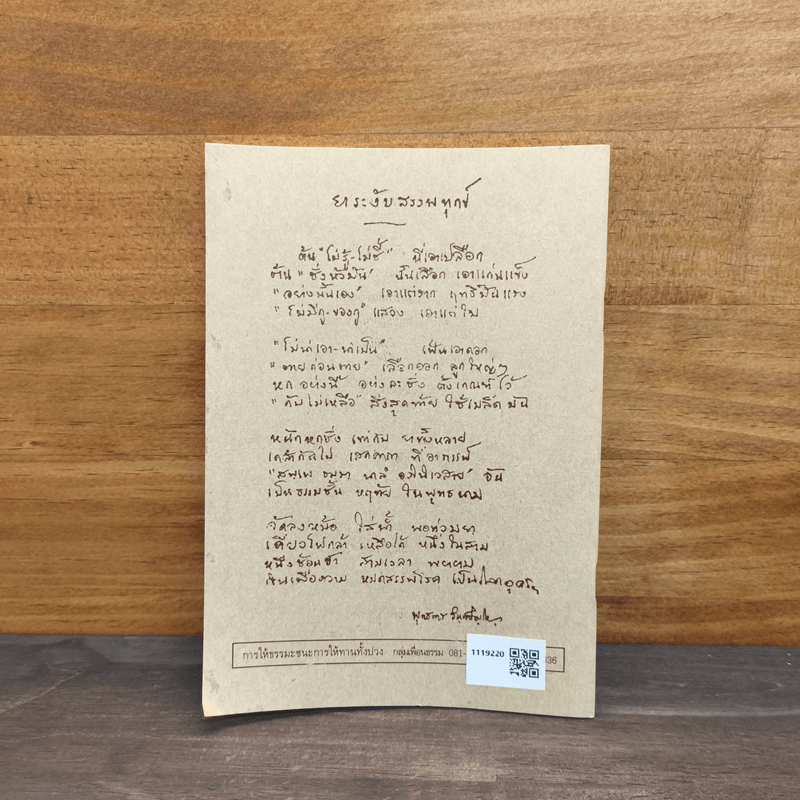 ยาระงับสรรพทุกข์
ต้น "ไม่รู้-ไม่ชี้" นี่เอาเปลือก
ต้น "ช่างหัวมัน" นั้นเลือก เอาแก่นแข็ง
"อย่างนั้นเอง" เอาแต่ราก ฤทธิ์มันแรง
"ไม่มีกู-ของกู" แสวง เอาแต่ใบ
"ไม่น่าเอา-น่าเป็น" เฟ้นเอาดอก
"ตายก่อนตาย" เลือกออก ลูกใหญ่ๆ
หก อย่างนี้ อย่างละชั่ง ตั้งเกณฑ์ไว้
"ดับไม่เหลือ" สิ่งสุดท้าย ใช้เมล็ดมัน
หนักหกชั่ง เท่ากับ ยาทั้งหลาย
เคล้ากันไป เสกคาถา ที่อาถรรพ์
"สพฺเพ ธมฺมา นาลํ อภินิเวสาย" อัน
เป็นธรรมชั้น หฤทัย ในพุทธนาม
จัดลงหม้อ ใส่น้ำ พอท่วมยา
เคี่ยวไฟกล้า เหลือได้ หนึ่งในสาม
หนึ่งช้อนชา สามเวลา พยายาม
กินเพื่อความ หมดสรรพโรค เป็นโลกอุดรฯ
พุทธทาส อินฺทปญฺโญ
การให้ธรรมะชนะการให้ทานทั้งปวง กลุ่มเพื่อนธรรม 081-
1119220
36